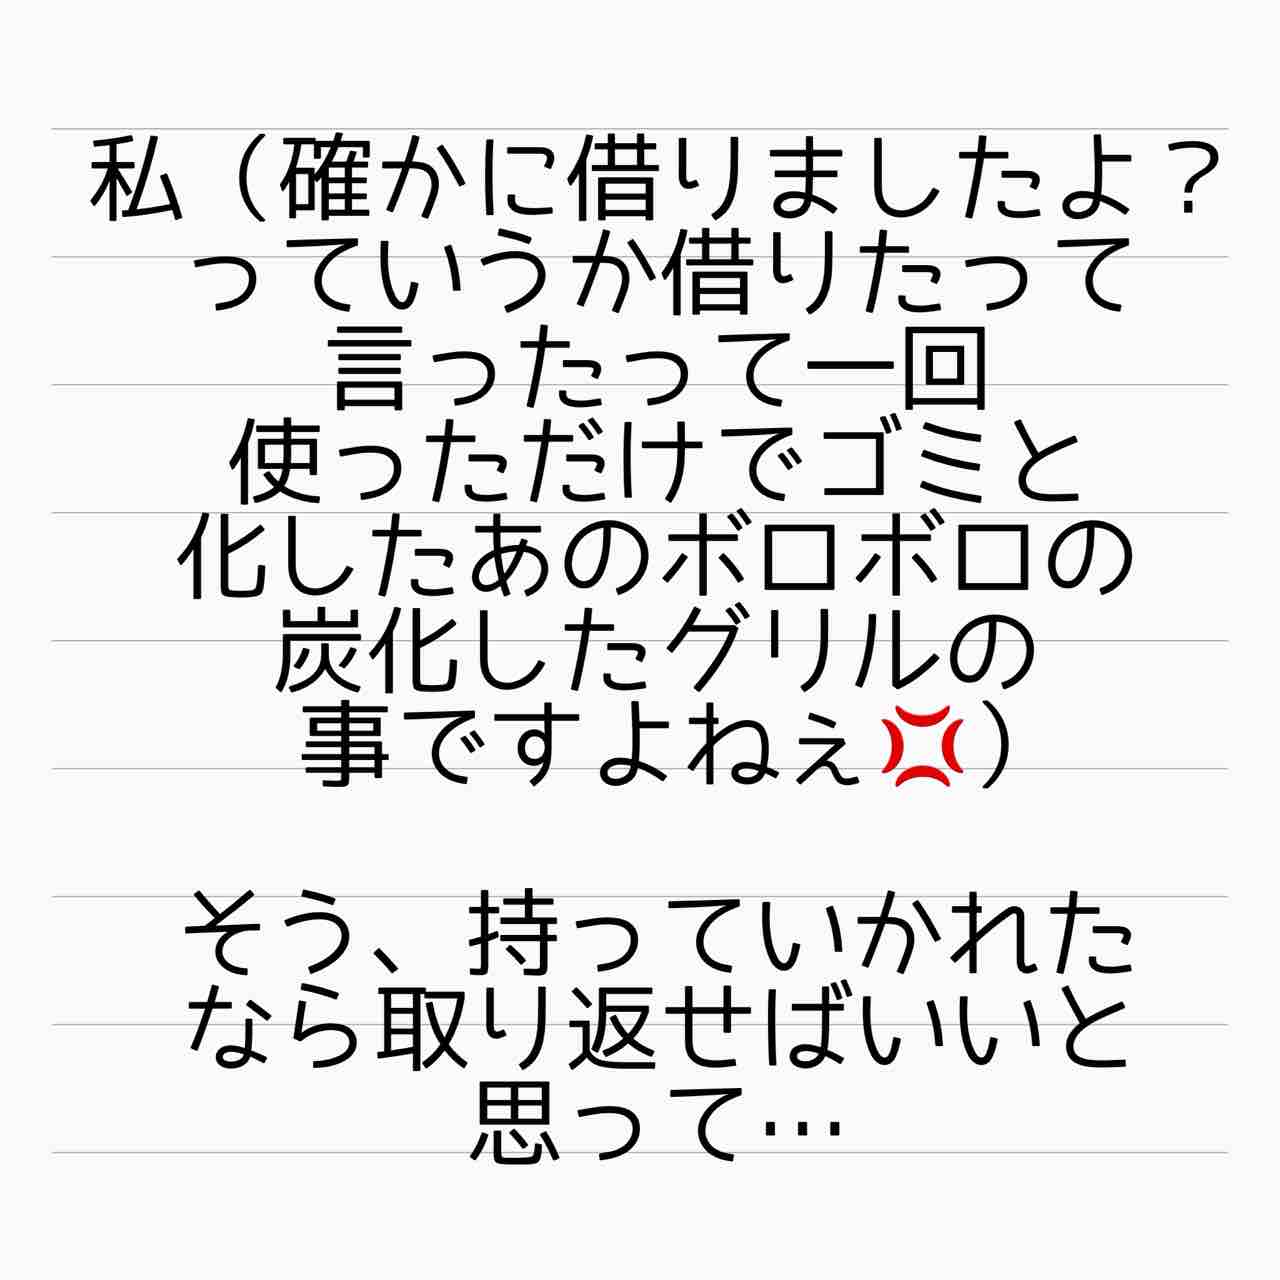 私（確かに借りましたよ？
っていうか借りたって
言ったって一回
使っただけでゴミと
化したあのボロボロの
炭化したグリルの
事ですよねぇ💢）
そう、持っていかれた
なら取り返せばいいと
思って…